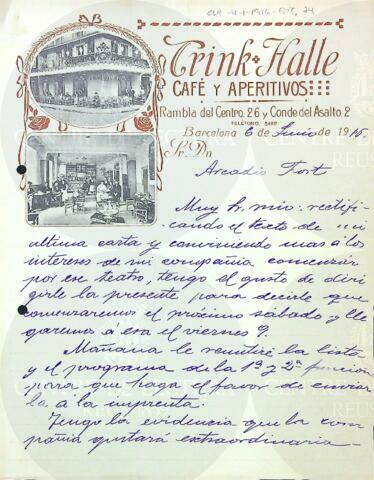 Trink-Halle
CAFÉ Y APERITIVOS
Rambla del Centro, 26 y Conde del Asalto, 2
TELÉFONO,
Barcelona 6 de Junio de 1916
Sr. Dn
Arcadio Fort
Muy Sr. mio: rectifi-
cando el texto de mi
ultima carta y conviniendo mas á los
intereses de mi compañia comenzar
por ese teatro, tengo el gusto de diri
girle la presente para decirle que
comenzaremos el próximo sábado y lle
garemos á esa el viernes 9.
Mañana le remitiré la lista
y el programa de la 1ª y 2ª función
para que haga el favor de enviar
la á la imprenta.
Tengo la evidencia que la com
pañia gustará extraordinaria-
CENTRE DE LECTURA
REUS